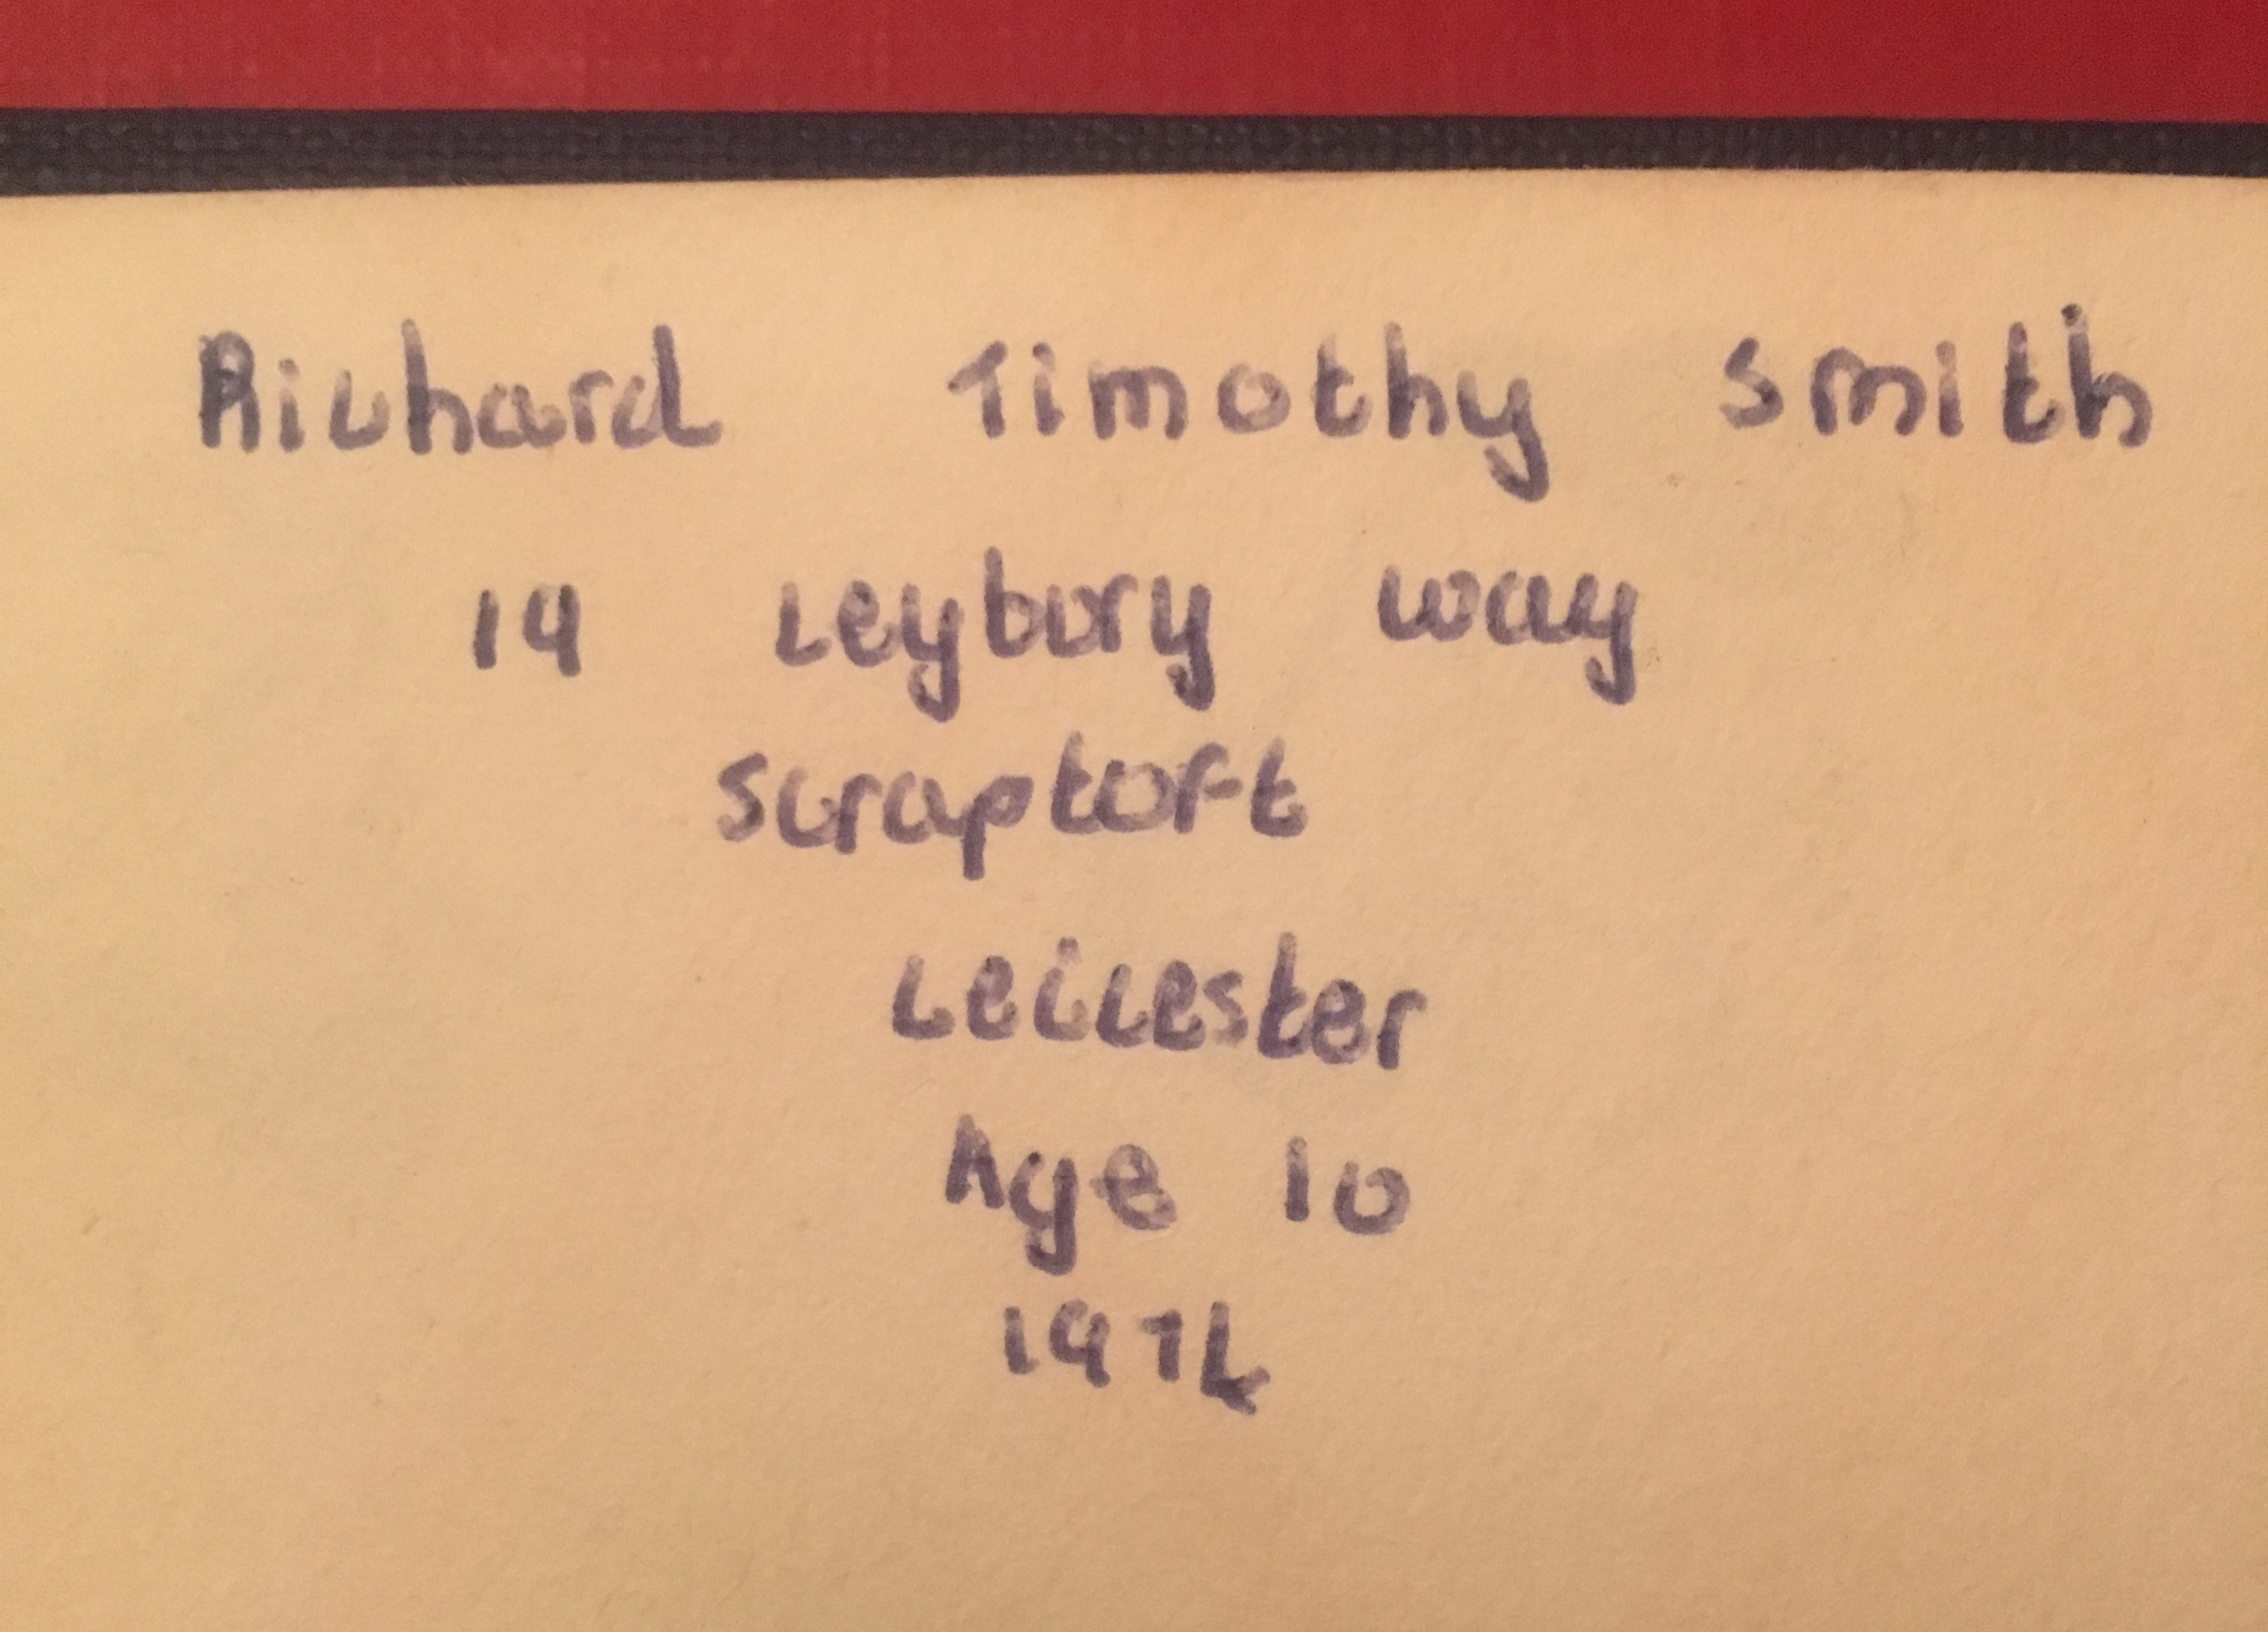 Richard Timothy Smith
19 Leybury Way
Scraptoft
Leicester
Age 10
1974